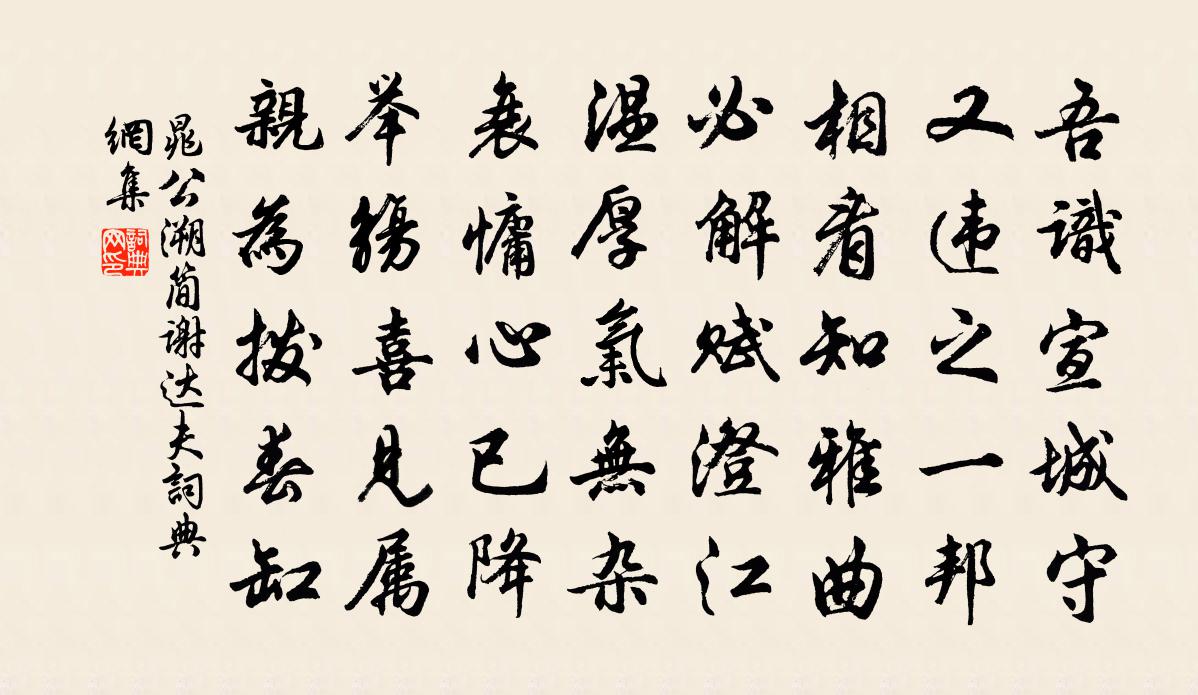 吾識宣城守
又违之一邦
相看知雅曲
必解赋澄江
温厚氣無杂
衰慵心已降
举觞喜見属
親為拨春缸
晁公溯简谢达夫詞典
網集
詞典
网印